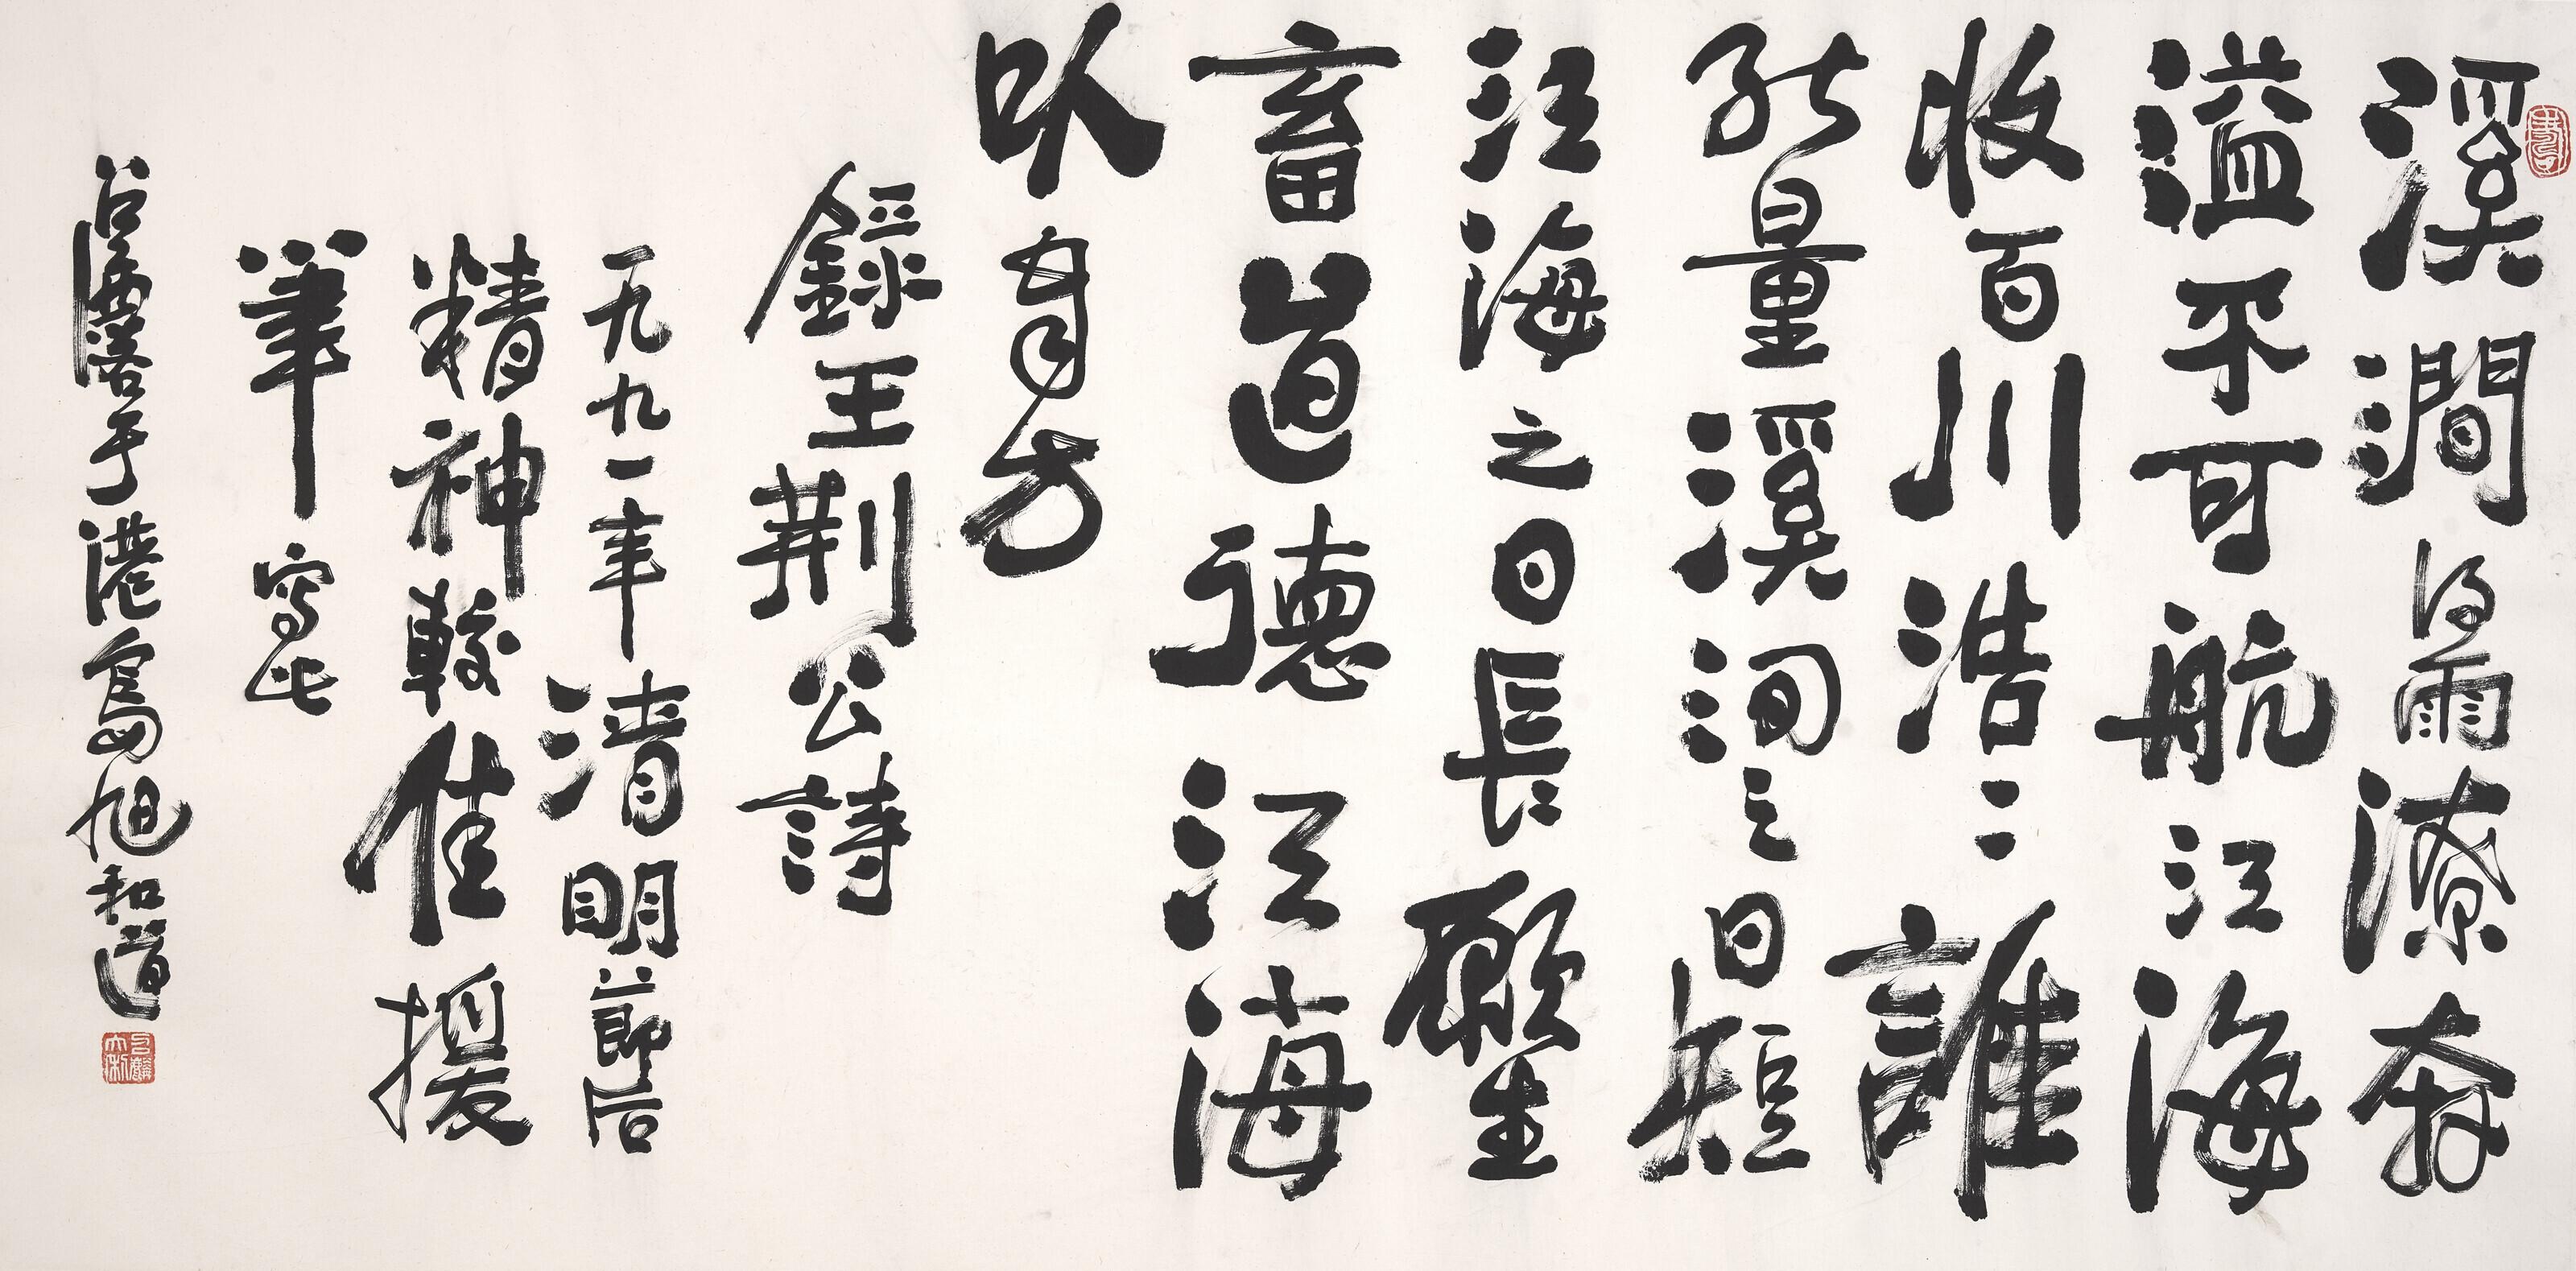 溪澗得雨潦奔
溢不可航江海
收百川浩々誰
能量溪澗之日短
江海之日長願生
畜道德江海
以方
錄王荊公詩
一九九一年清明節后
精神較佳援
筆寫此
于港島旭和道